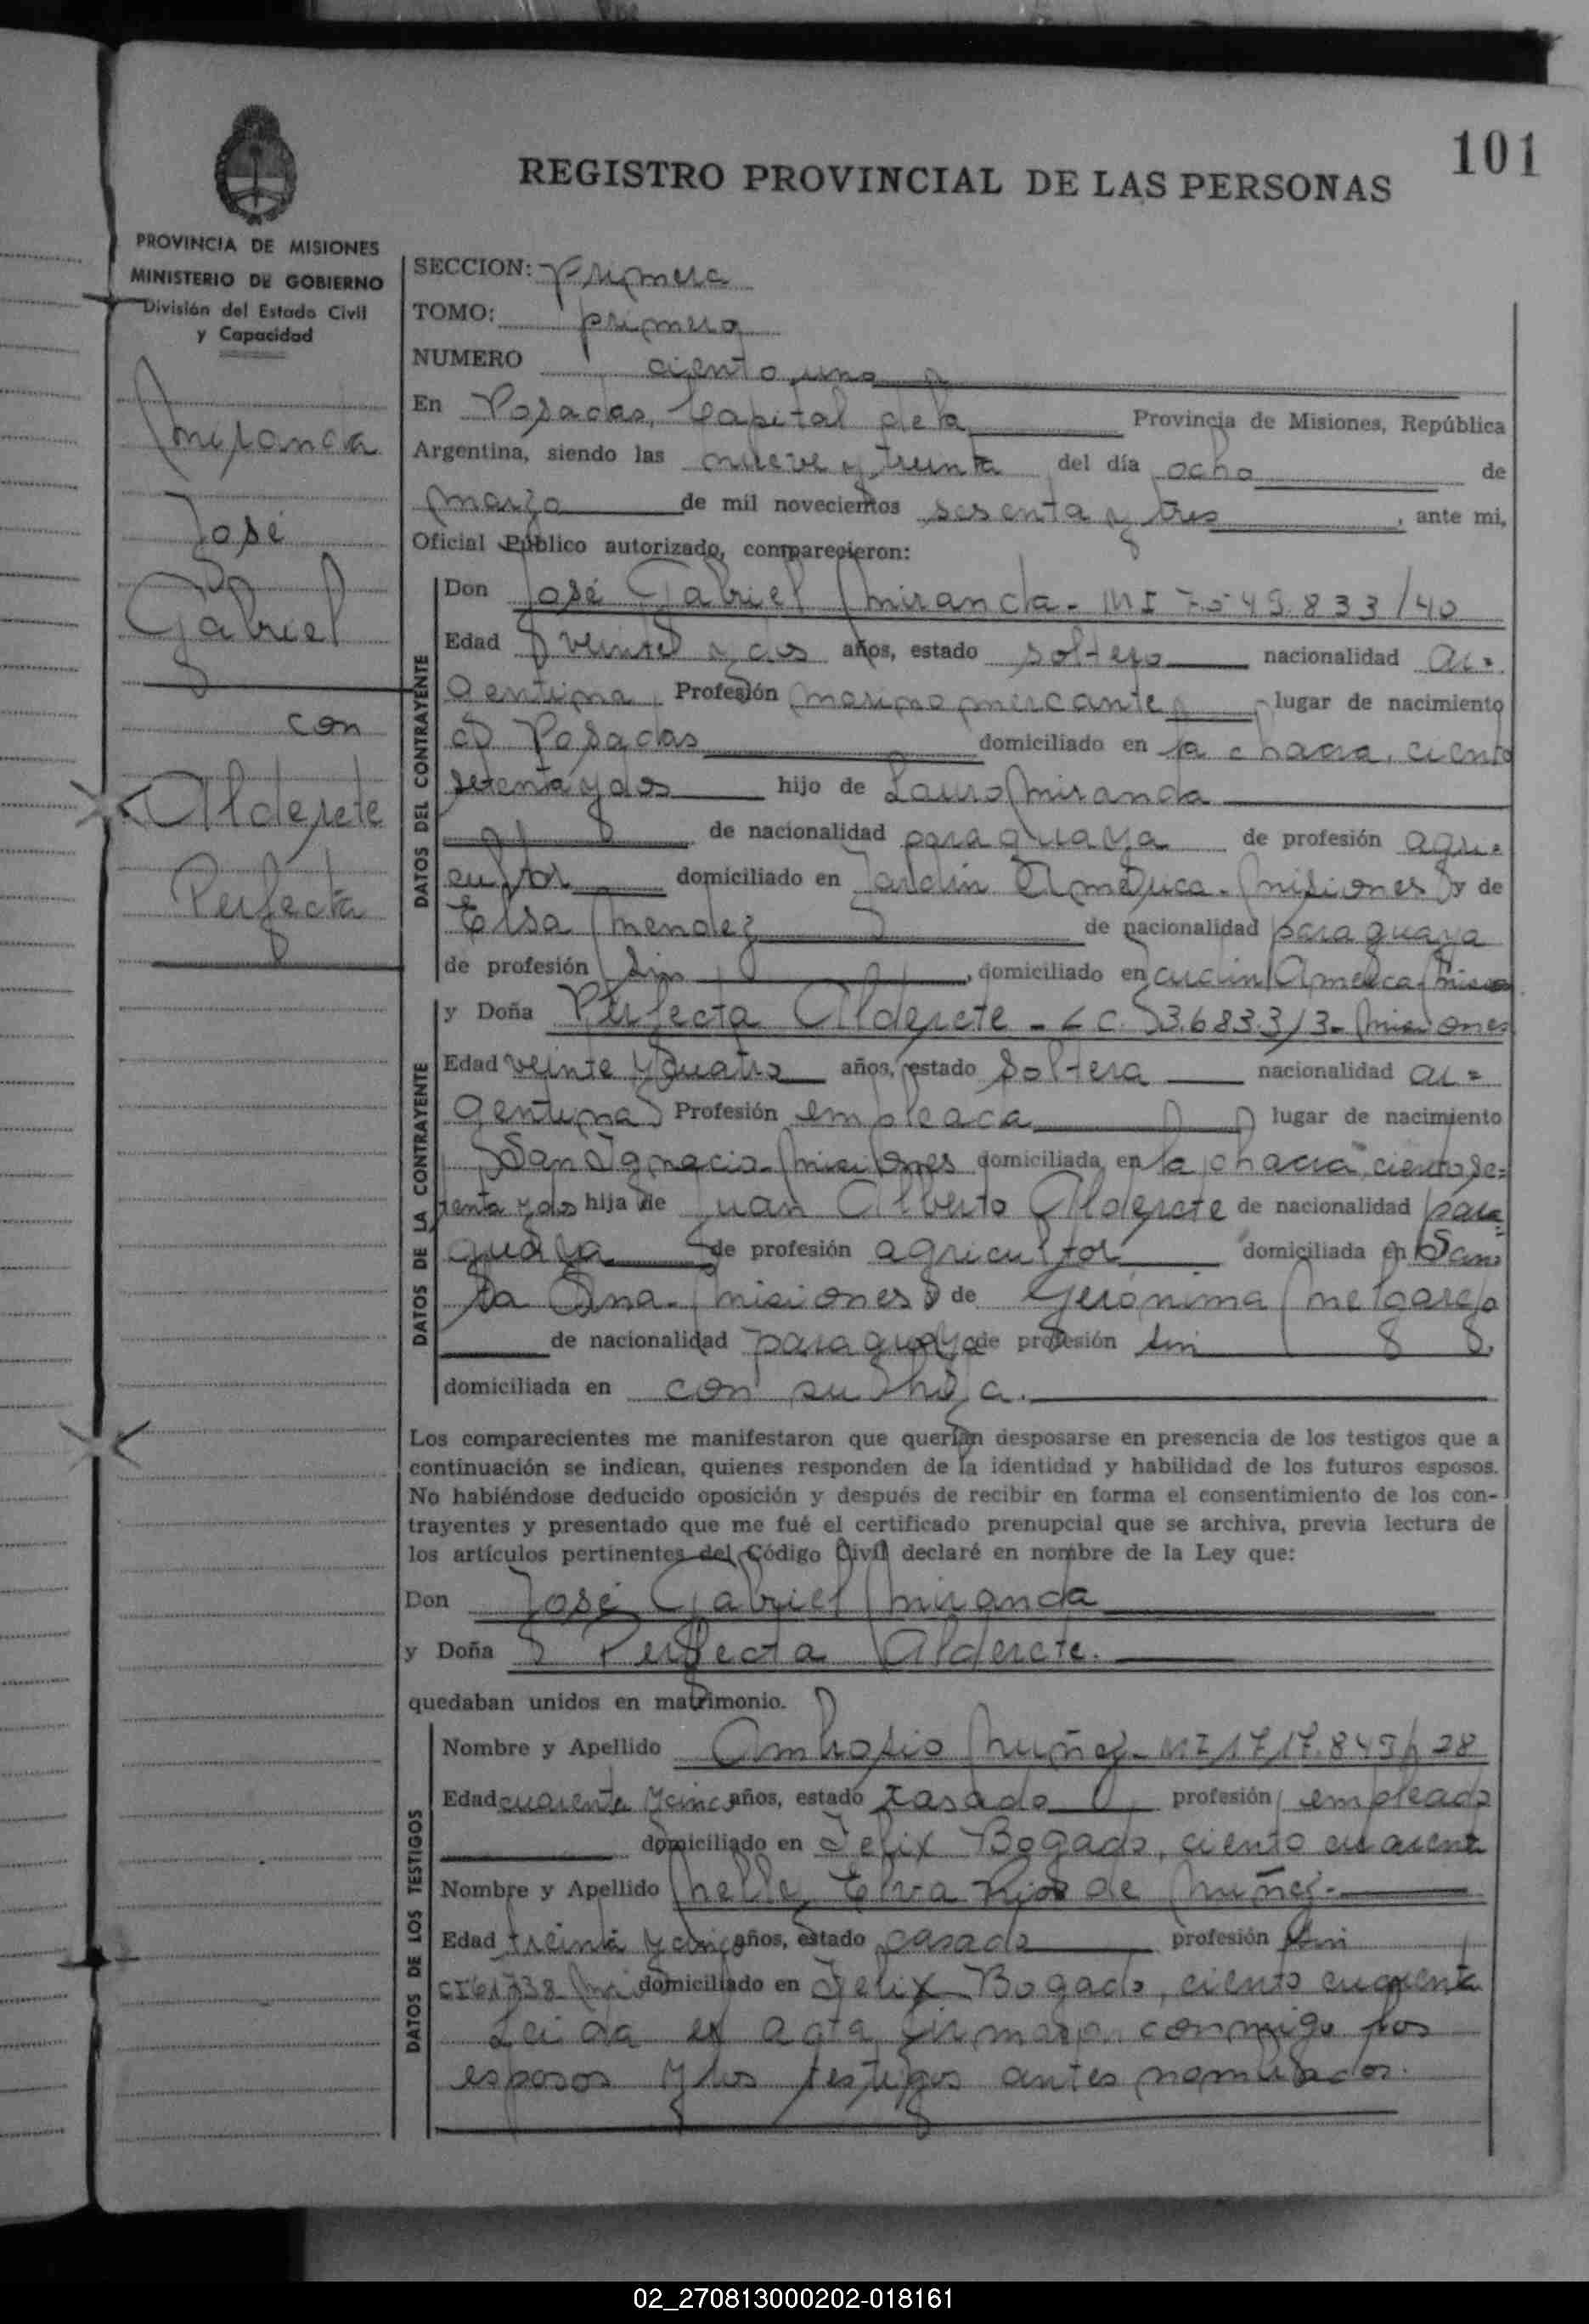 101
REGISTRO PROVINCIAL DE LAS PERSONAS
PROVINCIA DE MISIONES
MINISTERIO DE GOBIERNO
División del Estado Civil
y Capacidad
Miranda
José
Gabriel
con
Alderete
Perfecta
SECCION: Primera
TOMO: primero
NUMERO ciento uno
En Posadas, Capital de la Provincia de Misiones, República
Argentina, siendo las nueve y treinta del día ocho de
marzo de mil novecientos sesenta y tres, ante mi,
Oficial Público autorizado, comparecieron:
DATOS DEL CONTRAYENTE
Don José Gabriel Miranda - MI 7.549.833/40
Edad veinte y dos años, estado soltero nacionalidad ar=
gentina, Profesión marino mercante, lugar de nacimiento
Posadas domiciliado en la chacra, ciento
setenta y dos hijo de Lauro Miranda
de nacionalidad paraguaya de profesión agri=
cultor domiciliado en Jardin America - Misiones y de
Elsa Mendez de nacionalidad paraguaya
de profesión sin, domiciliado en Jardin America
DATOS DE LA CONTRAYENTE
y Doña Perfecta Alderete - L C. 3.683.313 - Misiones
Edad veinte y cuatro años, estado soltera nacionalidad ar=
gentina Profesión empleada lugar de nacimiento
San Ignacio - Misiones domiciliada en la chacra ciento se=
tenta y dos hija de Juan Alberto Alderete de nacionalidad para=
guaya de profesión agricultor domiciliada en San=
ta Ana - Misiones y de Gerónima Melgarejo
de nacionalidad paraguaya de profesión sin
domiciliada en con su hija.
Los comparecientes me manifestaron que querían desposarse en presencia de los testigos que a
continuación se indican, quienes responden de la identidad y habilidad de los futuros esposos.
No habiéndose deducido oposición y después de recibir en forma el consentimiento de los con-
trayentes y presentado que me fué el certificado prenupcial que se archiva, previa lectura de
los artículos pertinentes del Código Civil declaré en nombre de la Ley que:
Don José Gabriel Miranda
y Doña Perfecta Alderete.
quedaban unidos en matrimonio.
DATOS DE LOS TESTIGOS
Nombre y Apellido Ambrosio Muñoz - MI 1717.849/28
Edad cuarenta y cinco años, estado casado profesión empleado
domiciliado en Felix Bogado, ciento cuarenta
Nombre y Apellido Nelly Elva Rios de Muñoz -
Edad treinta y cinco años, estado casada profesión sin
CI 61738 domiciliado en Felix Bogado, ciento cuarenta
Leida el acta, firman conmigo los
esposos y los testigos antes nombrados.
02_270813000202-018161